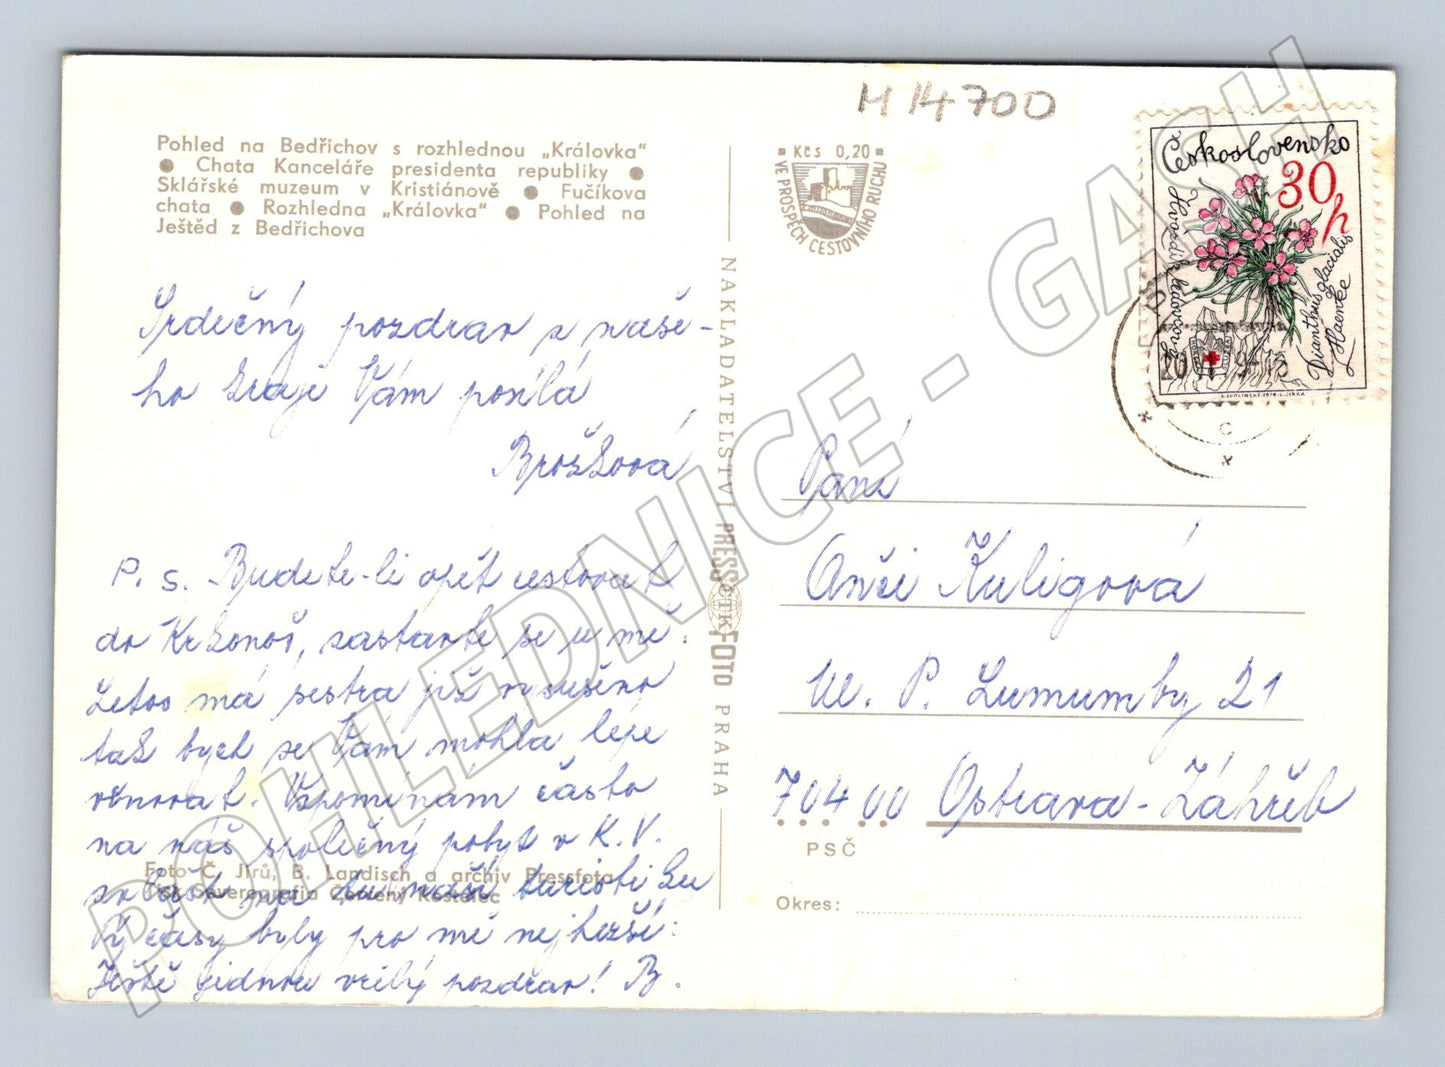 H 14700
Pohled na Bedřichov s rozhlednou „Královka"
● Chata Kanceláře presidenta republiky ●
Sklářské muzeum v Kristiánově ● Fučíkova
chata ● Rozhledna „Královka" ● Pohled na
Ještěd z Bedřichova
Kčs 0,20
VE PROSPĚCH CESTOVNÍHO RUCHU
Československo
30 h
Hvozdík ledovcový
Dianthus glacialis
Haenke
20 9-13
C
Srdečný pozdrav z naše-
ho kraje Vám posílá
Brožková
P. S. Budete-li opět cestovat
do Krkonoš, zastavte se u mě.
Letos má sestra již vysušeno
tak bych se Vám mohla lépe
věnovat. Vzpomínám často
na náš společný pobyt v K. V.
Foto Č. Jírů, B. Landisch a archiv Pressfoto
zvlášť na tu naši turistiku
Tisk Severografia Červený Kostelec
Ty časy byly pro mě nejhezší.
Ještě jednou vřelý pozdrav! B.
NAKLADATELSTVÍ PRESSFOTO PRAHA
ČTK
Paní
Anči Kuligová
Ul. P. Lumumby 21
704 00 Ostrava-Zábřeh
PSČ
Okres:
POHLEDNICE - GASH